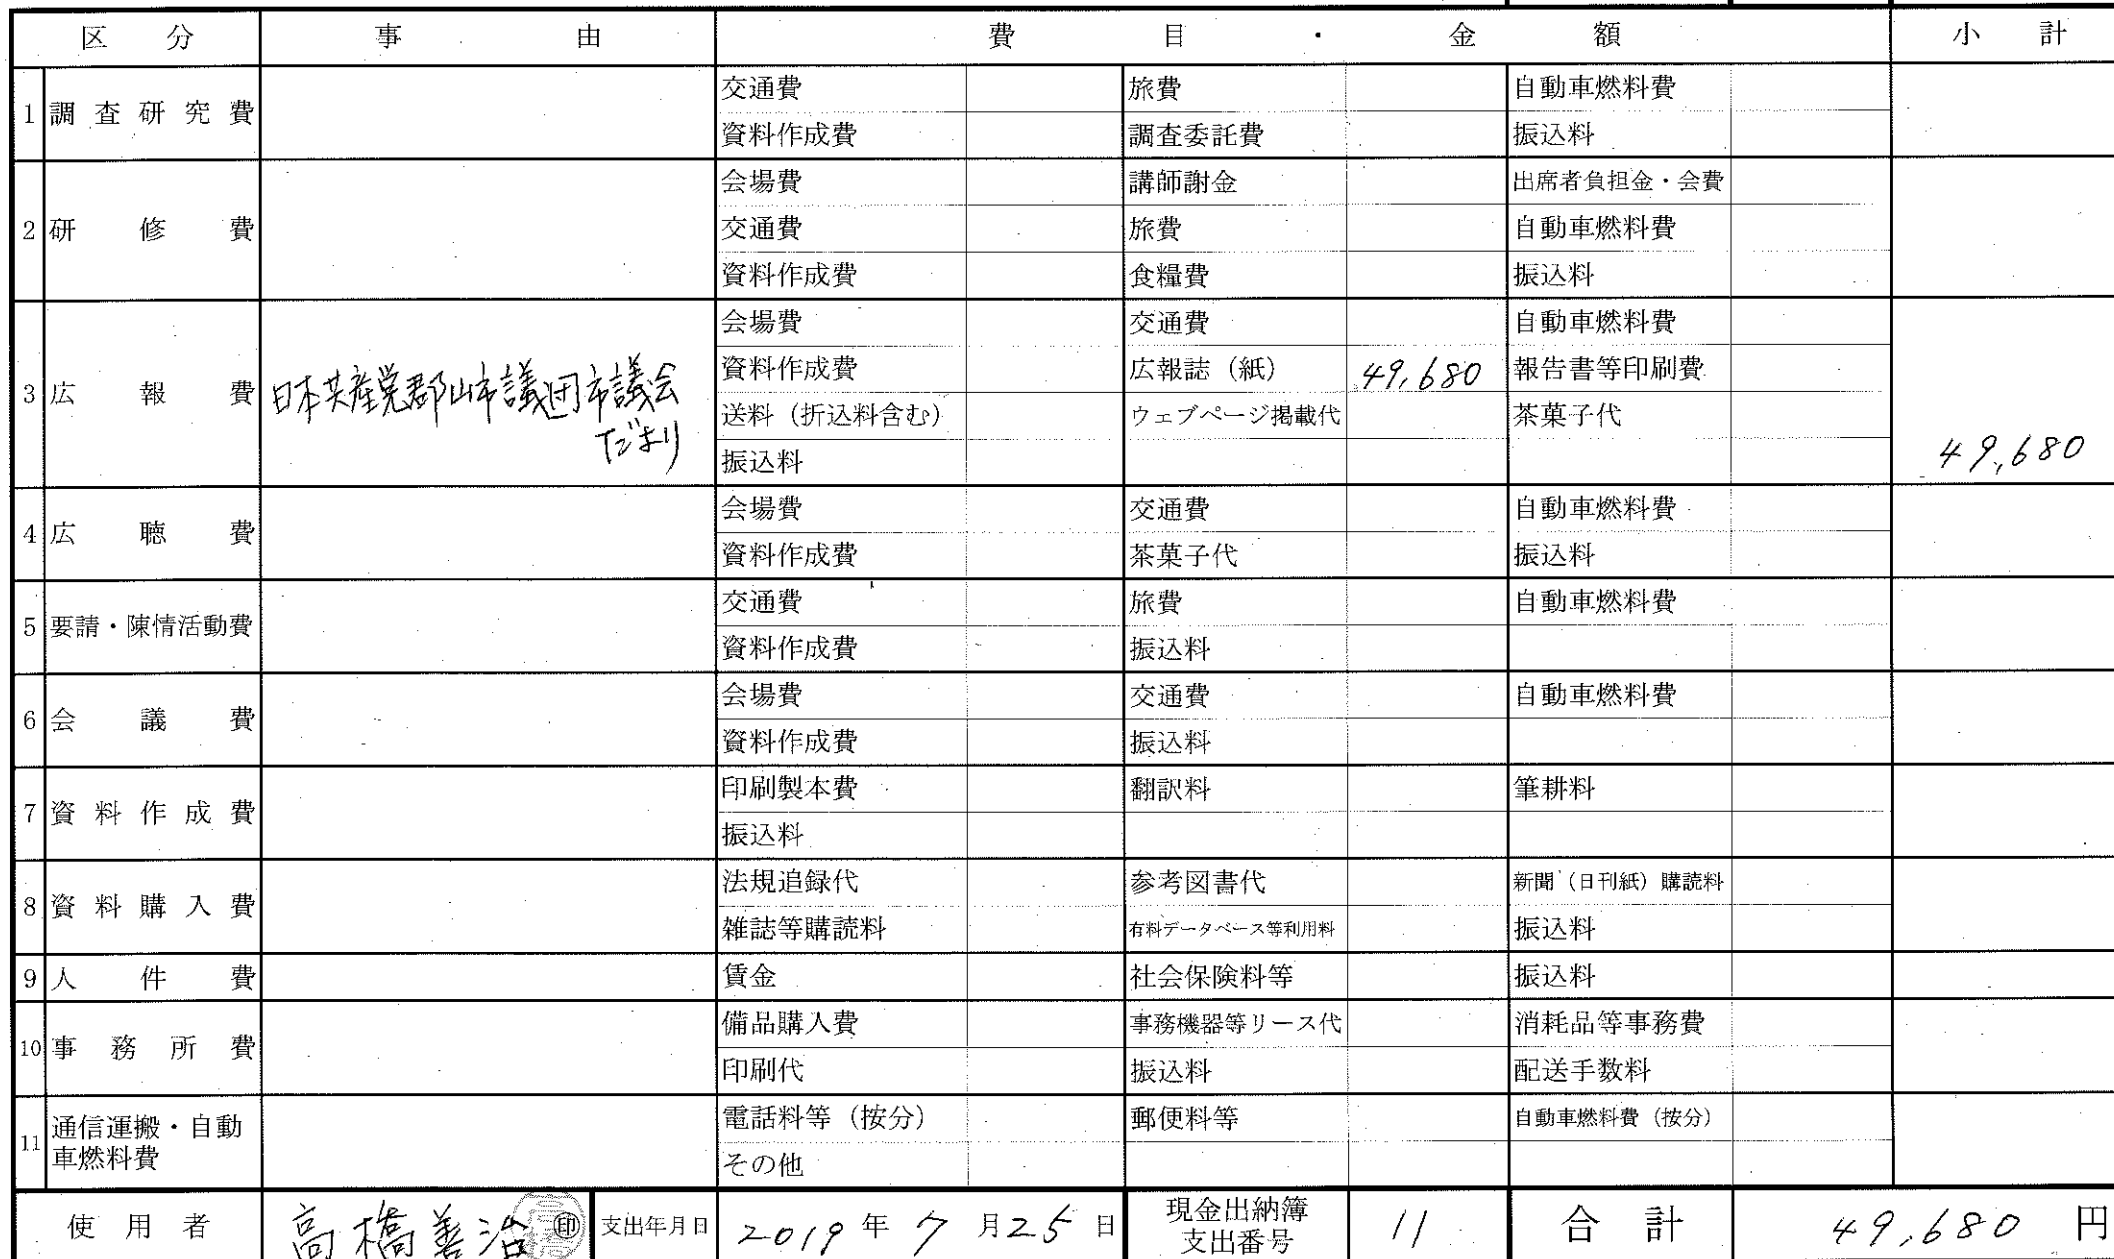 区 分 事 由 費 目 ・ 金 額 小 計
1 調査研究費 交通費 旅費 自動車燃料費
資料作成費 調査委託費 振込料
2 研修費 会場費 講師謝金 出席者負担金・会費
交通費 旅費 自動車燃料費
資料作成費 食糧費 振込料
3 広報費 日本共産党郡山市議団市議会だより 会場費 交通費 自動車燃料費
資料作成費 広報誌（紙） 49,680 報告書等印刷費
送料（折込料含む） ウェブページ掲載代 茶菓子代
振込料 49,680
4 広聴費 会場費 交通費 自動車燃料費
資料作成費 茶菓子代 振込料
5 要請・陳情活動費 交通費 旅費 自動車燃料費
資料作成費 振込料
6 会議費 会場費 交通費 自動車燃料費
資料作成費 振込料
7 資料作成費 印刷製本費 翻訳料 筆耕料
振込料
8 資料購入費 法規追録代 参考図書代 新聞（日刊紙）購読料
雑誌等購読料 有料データベース等利用料 振込料
9 人件費 賃金 社会保険料等 振込料
10 事務所費 備品購入費 事務機器等リース代 消耗品等事務費
印刷代 振込料 配送手数料
11 通信運搬・自動車燃料費 電話料等（按分） 郵便料等 自動車燃料費（按分）
その他
使用者 高橋善治 印 支出年月日 2019年7月25日 現金出納簿支出番号 11 合計 49,680円